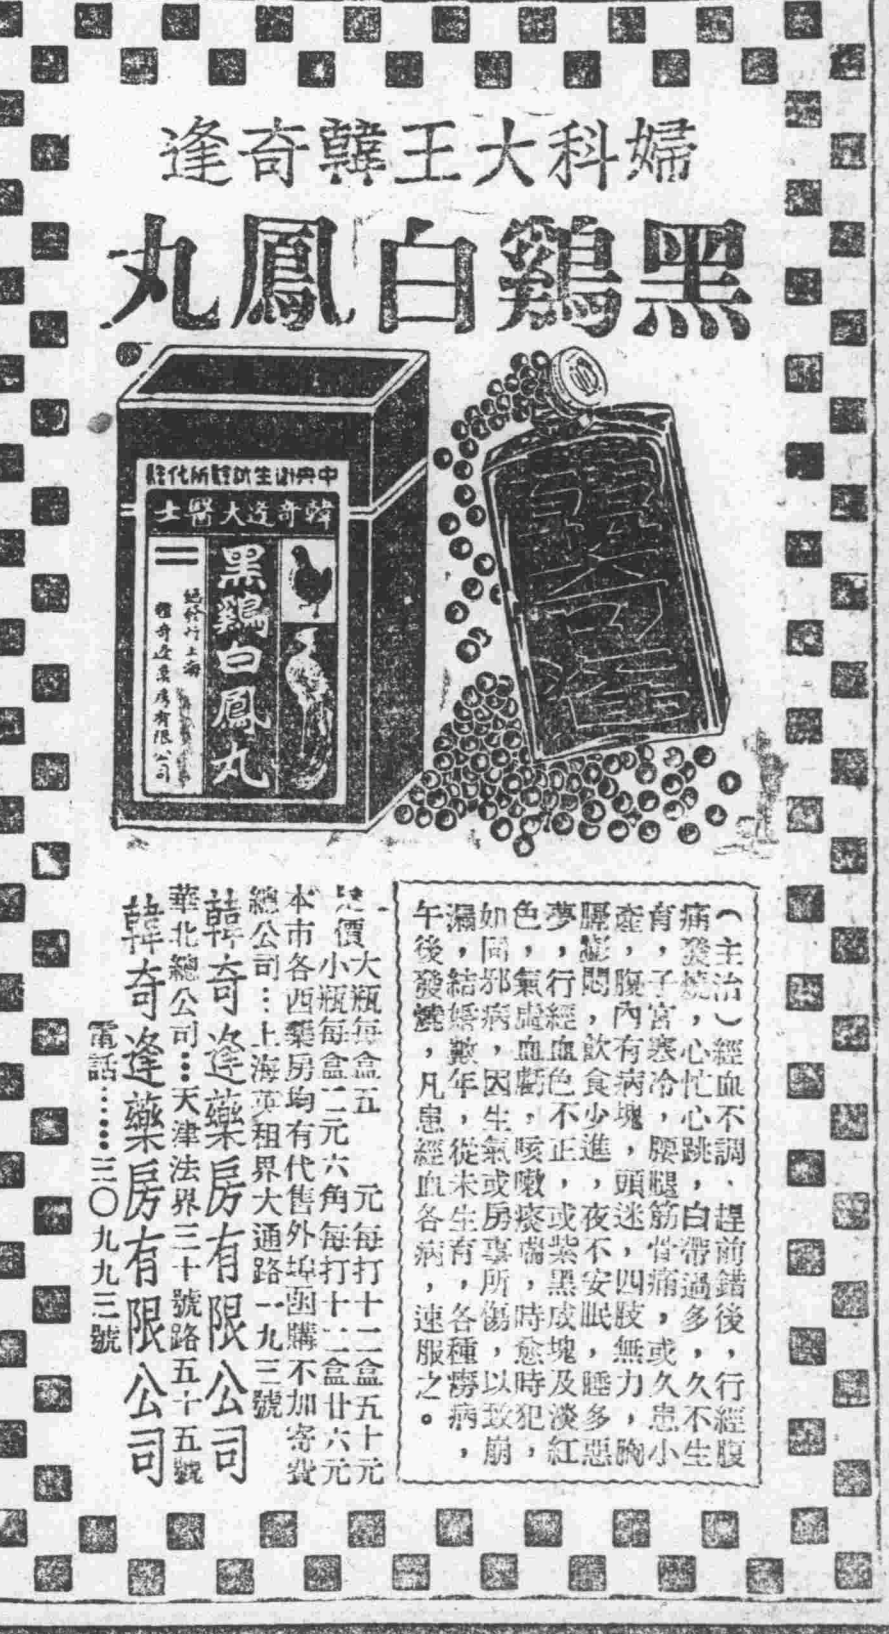 婦科大王韓奇逢
黑鷄白鳳丸
中央衛生試驗所化驗
韓奇逢大醫士
黑鷄白鳳丸
總發行上海
韓奇逢藥房有限公司
韓奇逢
（主治）經血不調，趕前錯後，行經腹
痛發燒，心忙心跳，白帶過多，久不生
育，子宮寒冷，腰腿筋骨痛，或久患小
產，腹內有病塊，頭迷，四肢無力，胸
膈膨悶，飲食少進，夜不安眠，睡多惡
夢，行經血色不正，或紫黑成塊及淡紅
色，氣虛血虧，咳嗽痰喘，時愈時犯，
如同邪病，因生氣或房事所傷，以致崩
漏，結婚數年，從未生育，各種癆病，
午後發燒，凡患經血各病，速服之。
定價
大瓶每盒五元每打十二盒五十元
小瓶每盒二元六角每打十二盒廿六元
本市各西藥房均有代售外埠函購不加寄費
總公司…上海英租界大通路一九三號
韓奇逢藥房有限公司
華北總公司…天津法界三十號路五十五號
韓奇逢藥房有限公司
電話……三〇九九三號